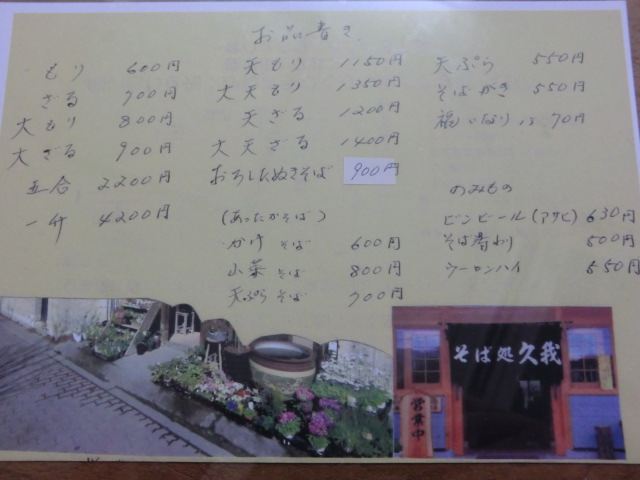 お品書き
もり 600円
ざる 700円
大もり 800円
大ざる 900円
五合 2200円
一升 4200円
天もり 1150円
大天もり 1350円
天ざる 1200円
大天ざる 1400円
おろしたぬきそば 900円
(あったかそば)
かけそば 600円
山菜そば 800円
天ぷらそば 900円
天ぷら 550円
そばがき 550円
いなり 1ヶ 70円
のみもの
ビンビール(アサヒ) 630円
そば書わり 500円
ウーロンハイ 550円
そば処 久我
営業中